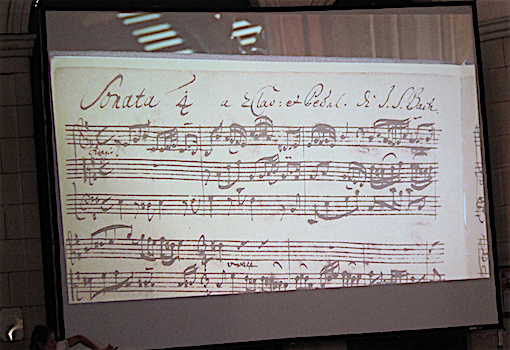 Sonata 4 a 2 Clav: et Pedal. di J.S. Bach.
Adagio